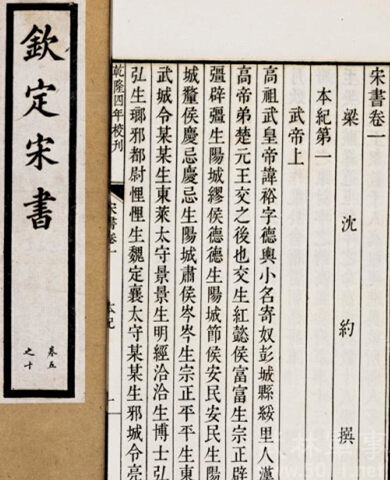 欽定宋書
卷五
之十
宋書卷一
梁 沈 約 撰
本紀第一
武帝上
高祖武皇帝諱裕字德輿小名寄奴彭城縣綏里人漢
高帝弟楚元王交之後也交生紅懿侯富富生宗正辟
彊辟彊生陽城繆侯德德生陽城節侯安民安民生陽
城釐侯慶忌慶忌生陽城肅侯岑岑生宗正平平生東
武城令某某生東萊太守景景生明經洽洽生博士弘
弘生瑯邪都尉悝悝生魏定襄太守某某生邪城令亮
乾隆四年校刊
宋書卷一
本紀
一